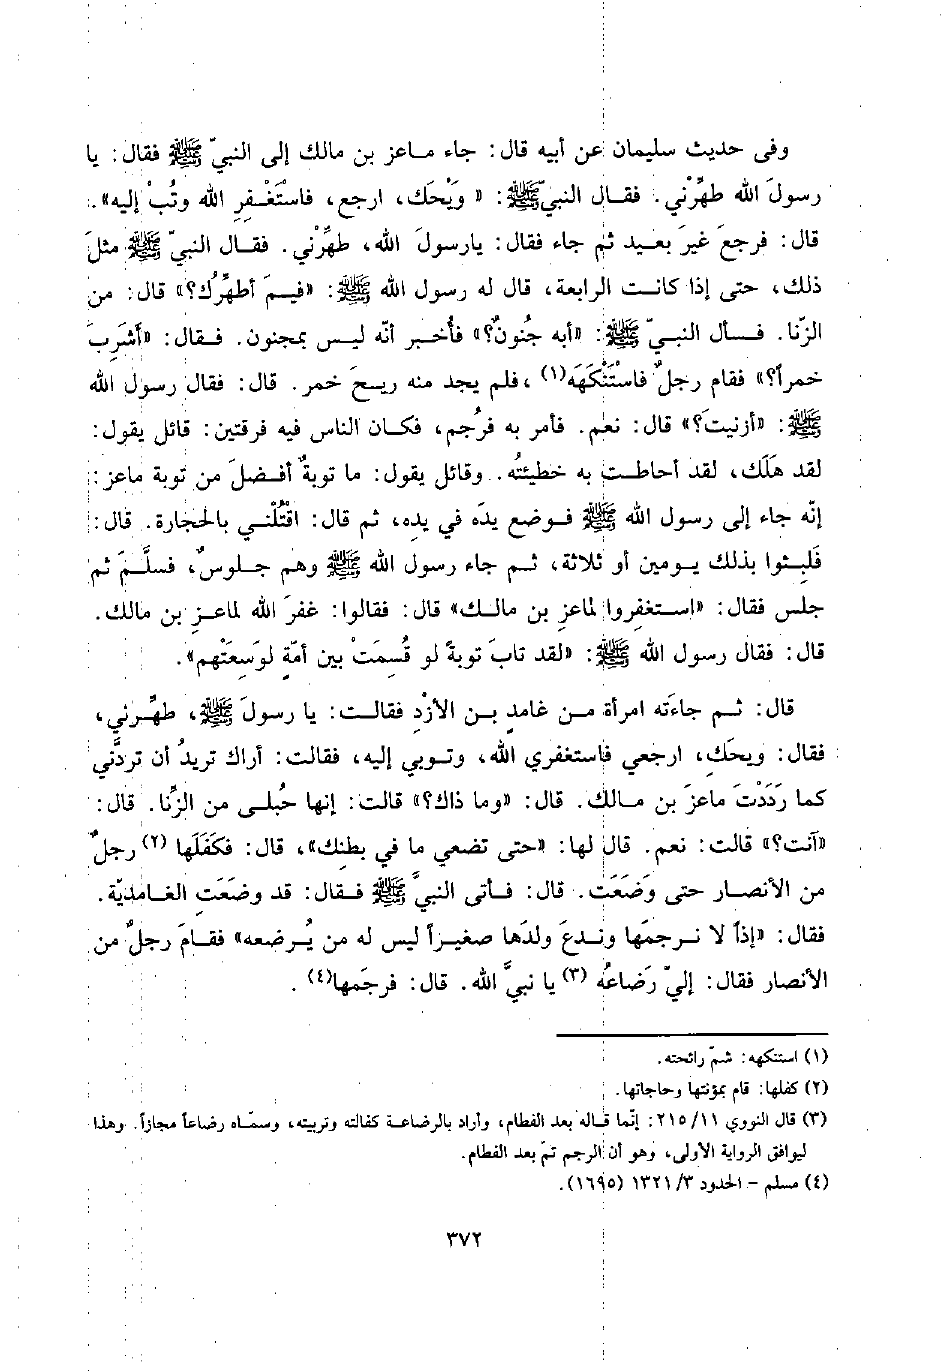 وفي حديث سليمان عن أبيه قال: جاء ماعز بن مالك إلى النبيّ ﷺ فقال: يا
رسولَ الله طهِّرْني. فقال النبيّ ﷺ: «وَيْحَك، ارجع، فاستَغْفِرِ الله وتُبْ إليه».
قال: فرجعَ غيرَ بعيد ثم جاء فقال: يارسولَ الله، طهِّرْني. فقال النبيّ ﷺ مثلَ
ذلك، حتى إذا كانت الرابعة، قال له رسول الله ﷺ: «فيمَ أطهِّرُك؟» قال: من
الزّنا. فسأل النبيّ ﷺ: «أبه جُنونٌ؟» فأُخبر أنّه ليس بمجنون. فقال: «أَشَرِبَ
خمراً؟» فقام رجلٌ فاسْتَنْكَهَه(١)، فلم يجد منه ريحَ خمر. قال: فقال رسول الله
ﷺ: «أزنيتَ؟» قال: نعم. فأمر به فرُجم، فكان الناس فيه فرقتين: قائل يقول:
لقد هَلَك، لقد أحاطت به خطيئتُه. وقائل يقول: ما توبةٌ أفضلَ من توبة ماعز:
إنّه جاء إلى رسول الله ﷺ فوضع يدَه في يده، ثم قال: اقْتُلْني بالحجارة. قال:
فَلَبِثوا بذلك يومين أو ثلاثة، ثم جاء رسول الله ﷺ وهم جلوسٌ، فسلَّمَ ثم
جلس فقال: «استغفروا لماعزِ بن مالك» قال: فقالوا: غفرَ الله لماعزِ بن مالك.
قال: فقال رسول الله ﷺ: «لقد تابَ توبةً لو قُسِمَتْ بين أمّةٍ لوَسِعَتْهم».
قال: ثم جاءَته امرأة من غامدٍ بن الأزْدِ فقالت: يا رسولَ ﷺ، طهِّرني،
فقال: ويحَكِ، ارجعي فاستغفري الله، وتوبي إليه، فقالت: أراك تريدُ أن تردَّني
كما رَدَدْتَ ماعزَ بن مالك. قال: «وما ذاك؟» قالت: إنها حُبلى من الزِّنا. قال:
«آنت؟» قالت: نعم. قال لها: «حتى تضعي ما في بطنك»، قال: فكَفَلَها (٢) رجلٌ
من الأنصار حتى وَضَعَت. قال: فأتى النبيَّ ﷺ فقال: قد وضَعَتِ الغامديّة.
فقال: «إذاً لا نرجمَها وندعَ ولدَها صغيراً ليس له من يُرضعه» فقامَ رجلٌ من
الأنصار فقال: إليّ رَضاعُه (٣) يا نبيَّ الله. قال: فرجَمها(٤).
(١) استنكهه: شمّ رائحته.
(٢) كفلها: قام بمؤنتها وحاجاتها.
(٣) قال النووي ٢١٥/١١: إنّما قاله بعد الفطام، وأراد بالرضاعة كفالته وتربيته، وسمّاه رضاعاً مجازاً. وهذا
ليوافق الرواية الأولى، وهو أن الرجم تمّ بعد الفطام.
(٤) مسلم - الحدود ١٣٢١/٣ (١٦٩٥).
٣٧٢